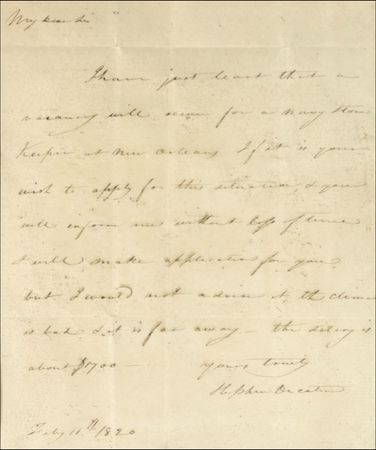 My dear Sir
I have just learnt that a
vacancy will occur for a Navy Store
Keeper at New Orleans. If it is your
wish to apply for this situation, & you
will inform me without loss of time
I will make application for you
but I would not advise it, the climate
is bad & it is far away – the salary is
about $1700 –
yours truly
Stephen Decatur
Feby 11th 1820